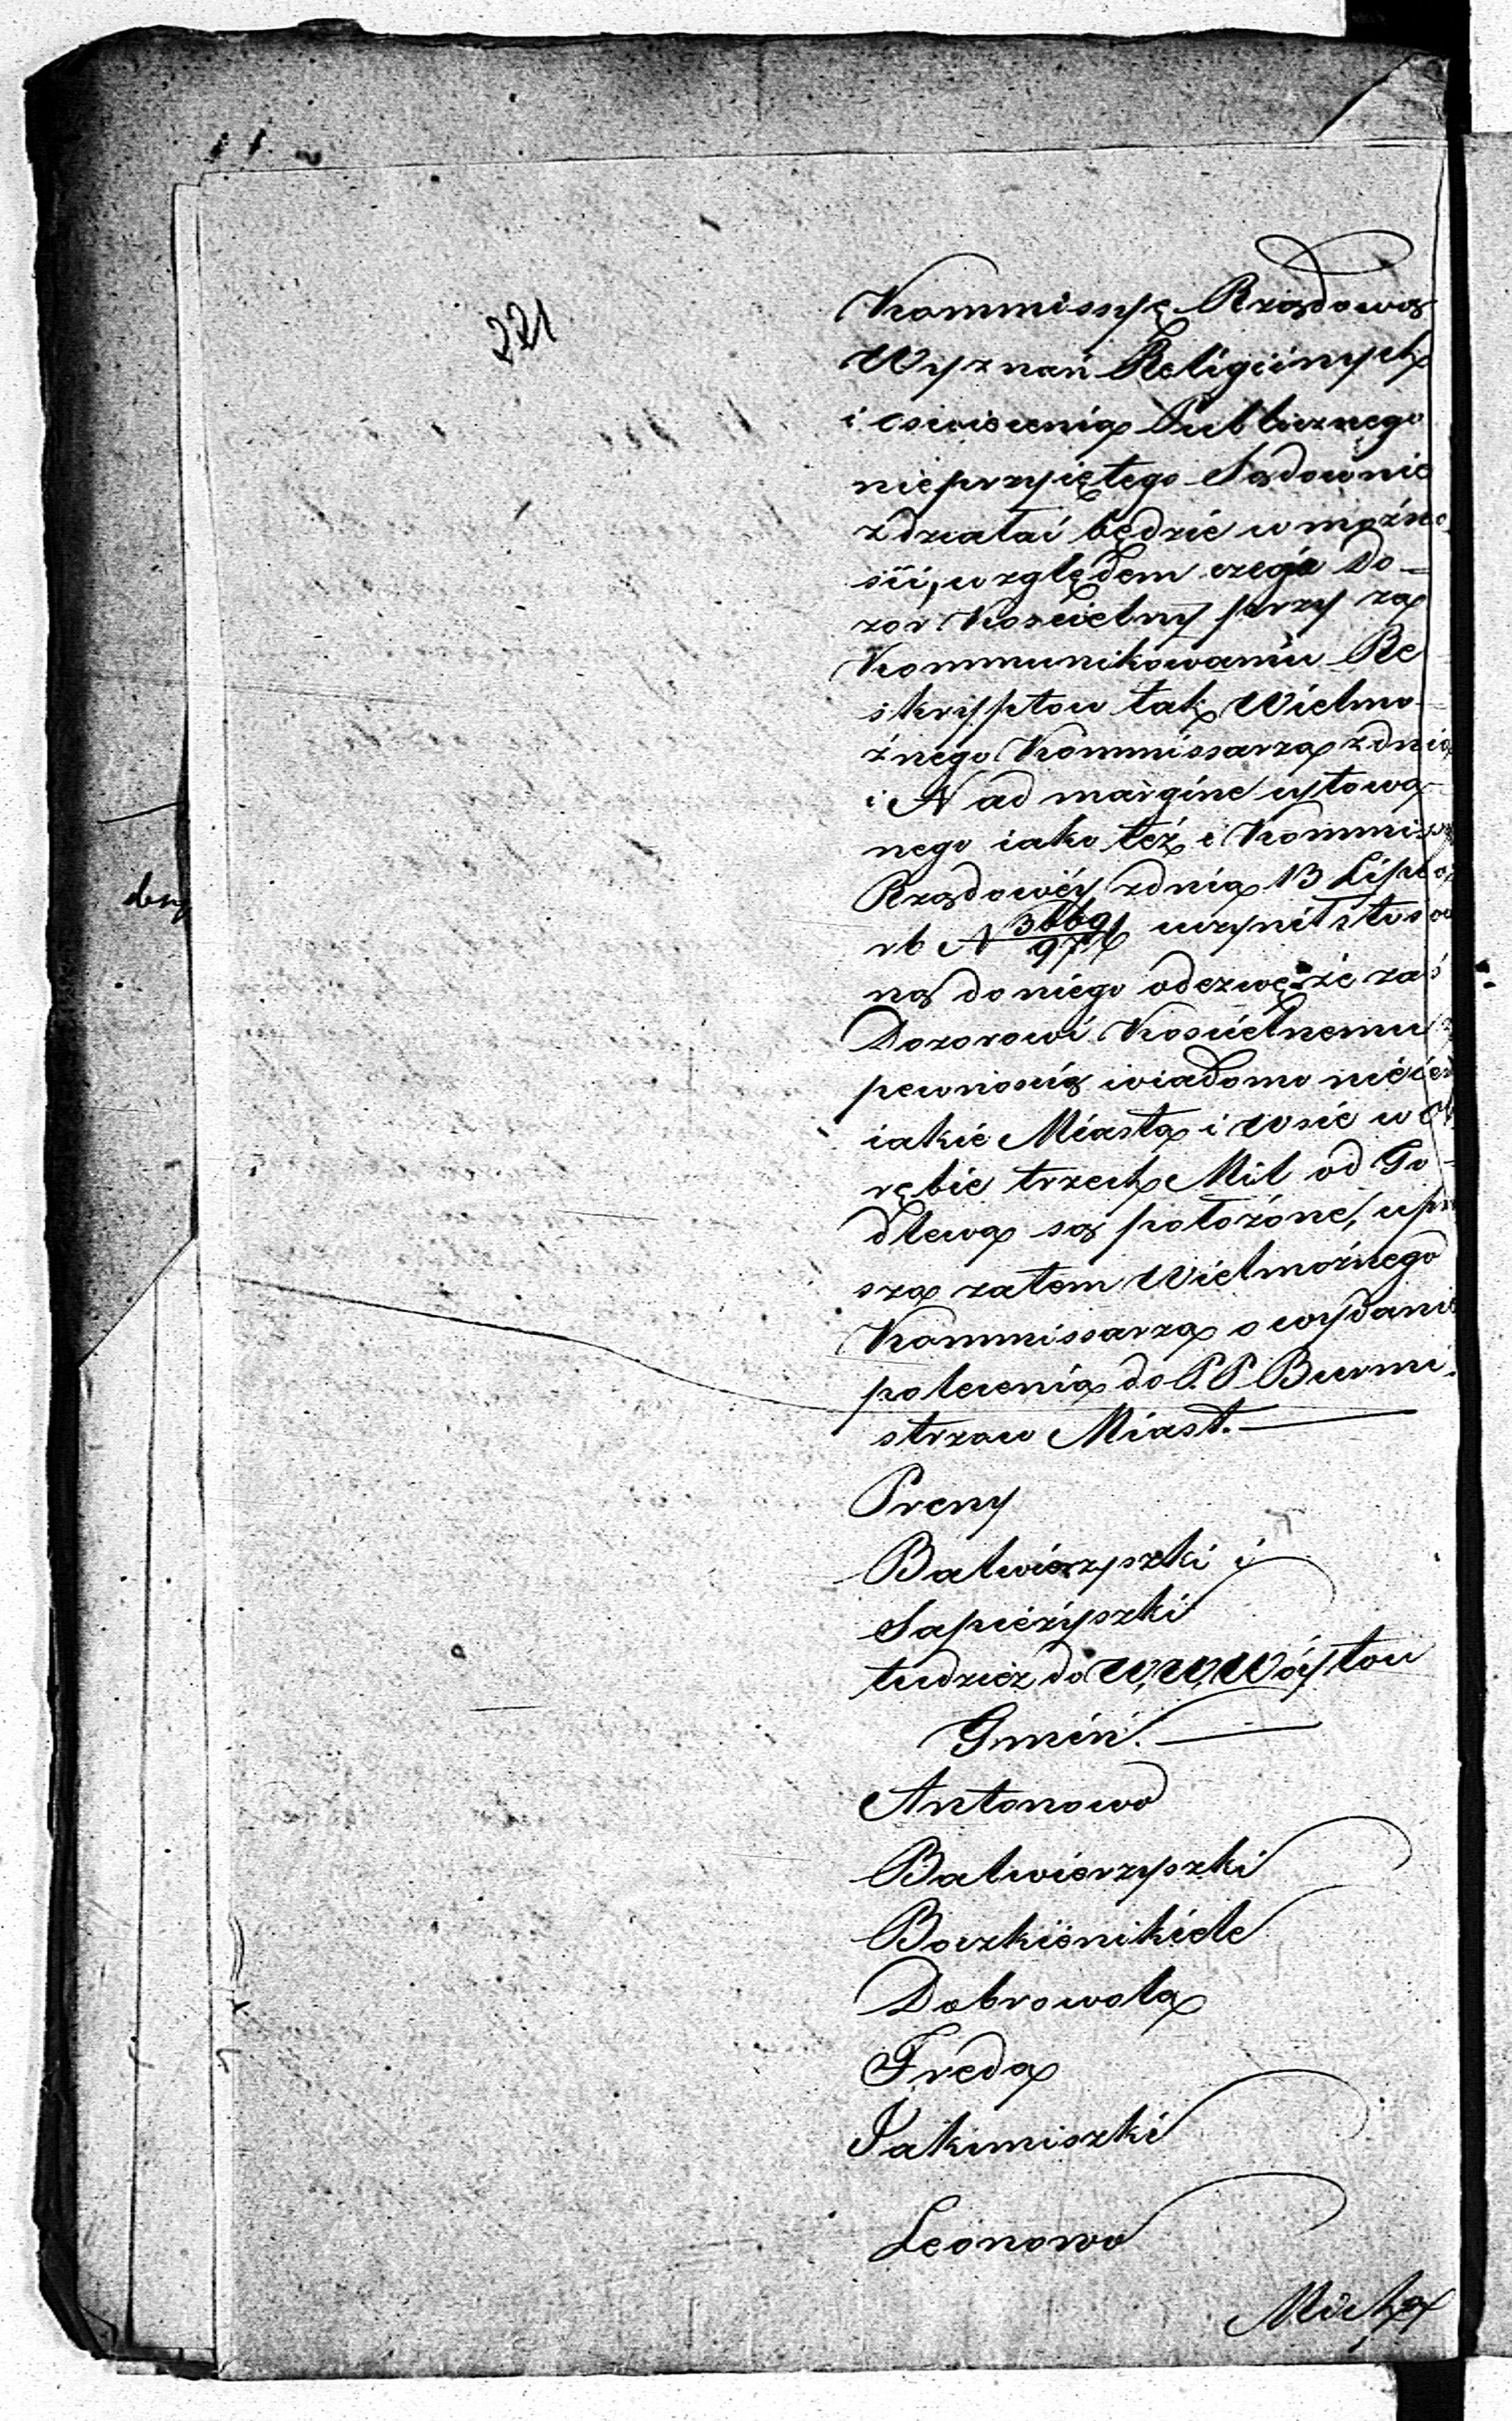 221
Kommissyę Rządową
Wyznań Religiinych
i oswiecenia Publicznego
nieprzyiętego Sądownie
zdziałai będzie w możno
sii, względem czego Do-
zor Koscielny przy za
Kommunikowaniu Re
skryptow tak Wielmo-
żnego Kommissarza zdnia
i N ad margine cytowa
nego iako też i Kommissyi
Rządowéy zdnia 13 Lipca
rb N 3669/976 uczynił stosow
ną do niego odezwę, że zaś
Dozorowi Koscielnemu z
pewnoscią wiadomo nie iest
iakie Miasta i wsie w Ob
rębie trzech Mil od Go-
dlewa są położone, upra
sza zatem Wielmożnego
Kommissarza o wydanie
polecenia do P.P. Burmi-
strzow Miast.
Preny
Balwierzyszki i
Sapieżyszki
tudzież do W, W, Wóytow
Gmin.
Antonowo
Balwierzyszki
Boczkienikiele
Dobrowola
Freda
Jakimiszki
Leonowo
Micha